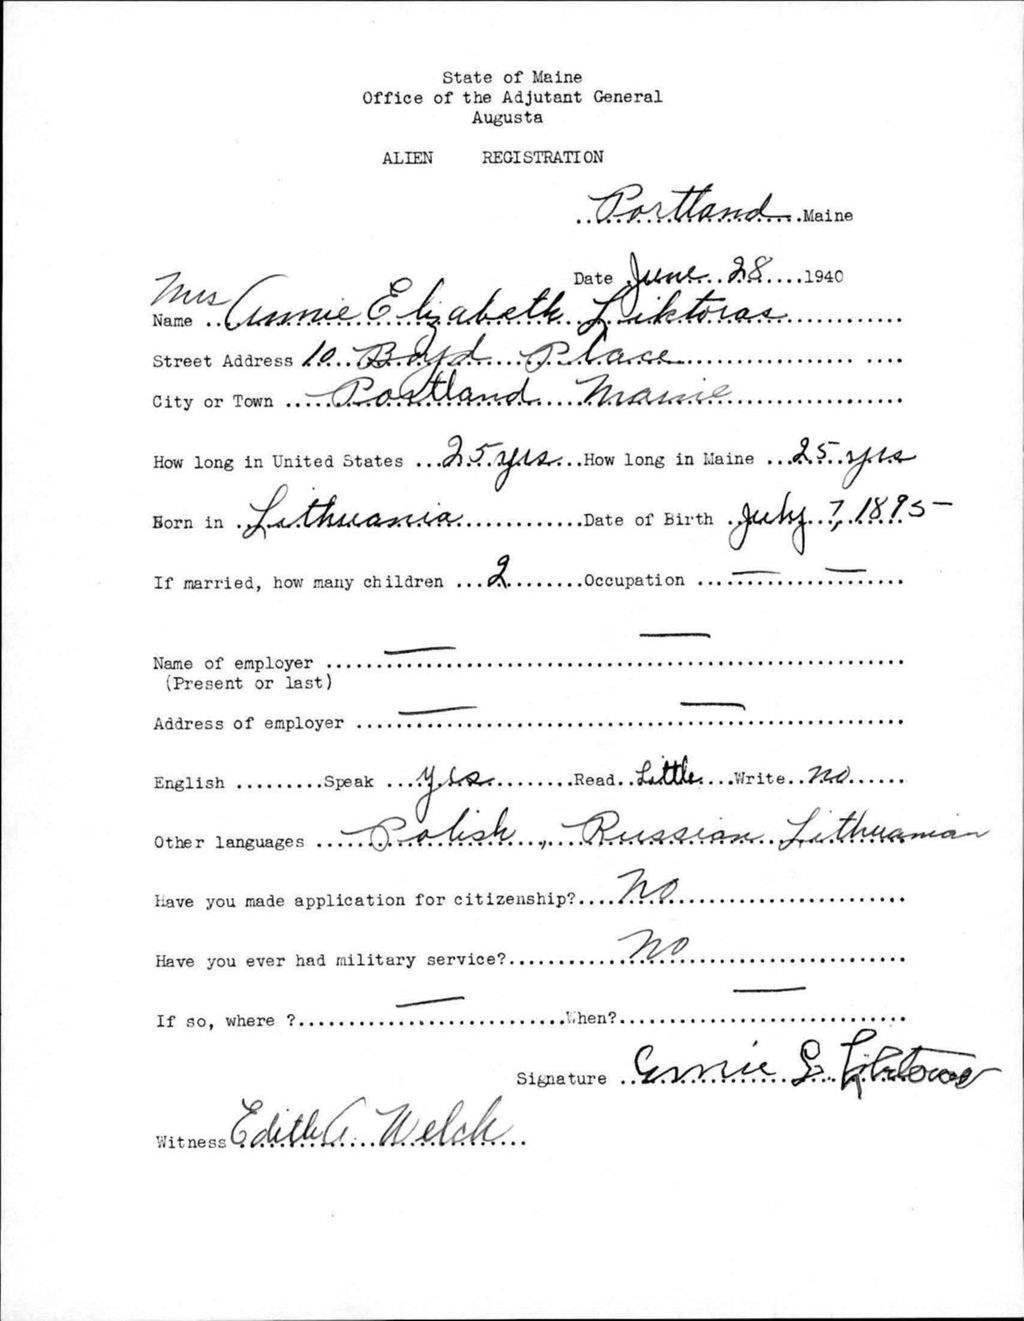 State of Maine
Office of the Adjutant General
Augusta
ALIEN REGISTRATION
Portland Maine
Date June 28 1940
Mrs
Name Annie Elizabeth Liktoras
Street Address 10 Boyd Place
City or Town Portland Maine
How long in United States 25 yrs How long in Maine 25 yrs
Born in Lithuania Date of Birth July 7, 1895
If married, how many children 2 Occupation — —
Name of employer — —
(Present or last)
Address of employer — —
English Speak yes Read Little Write no
Other languages Polish, Russian Lithuanian
Have you made application for citizenship? No
Have you ever had military service? No
If so, where ? — When? —
Signature Annie L Liktoras
Witness Edith A. Welch